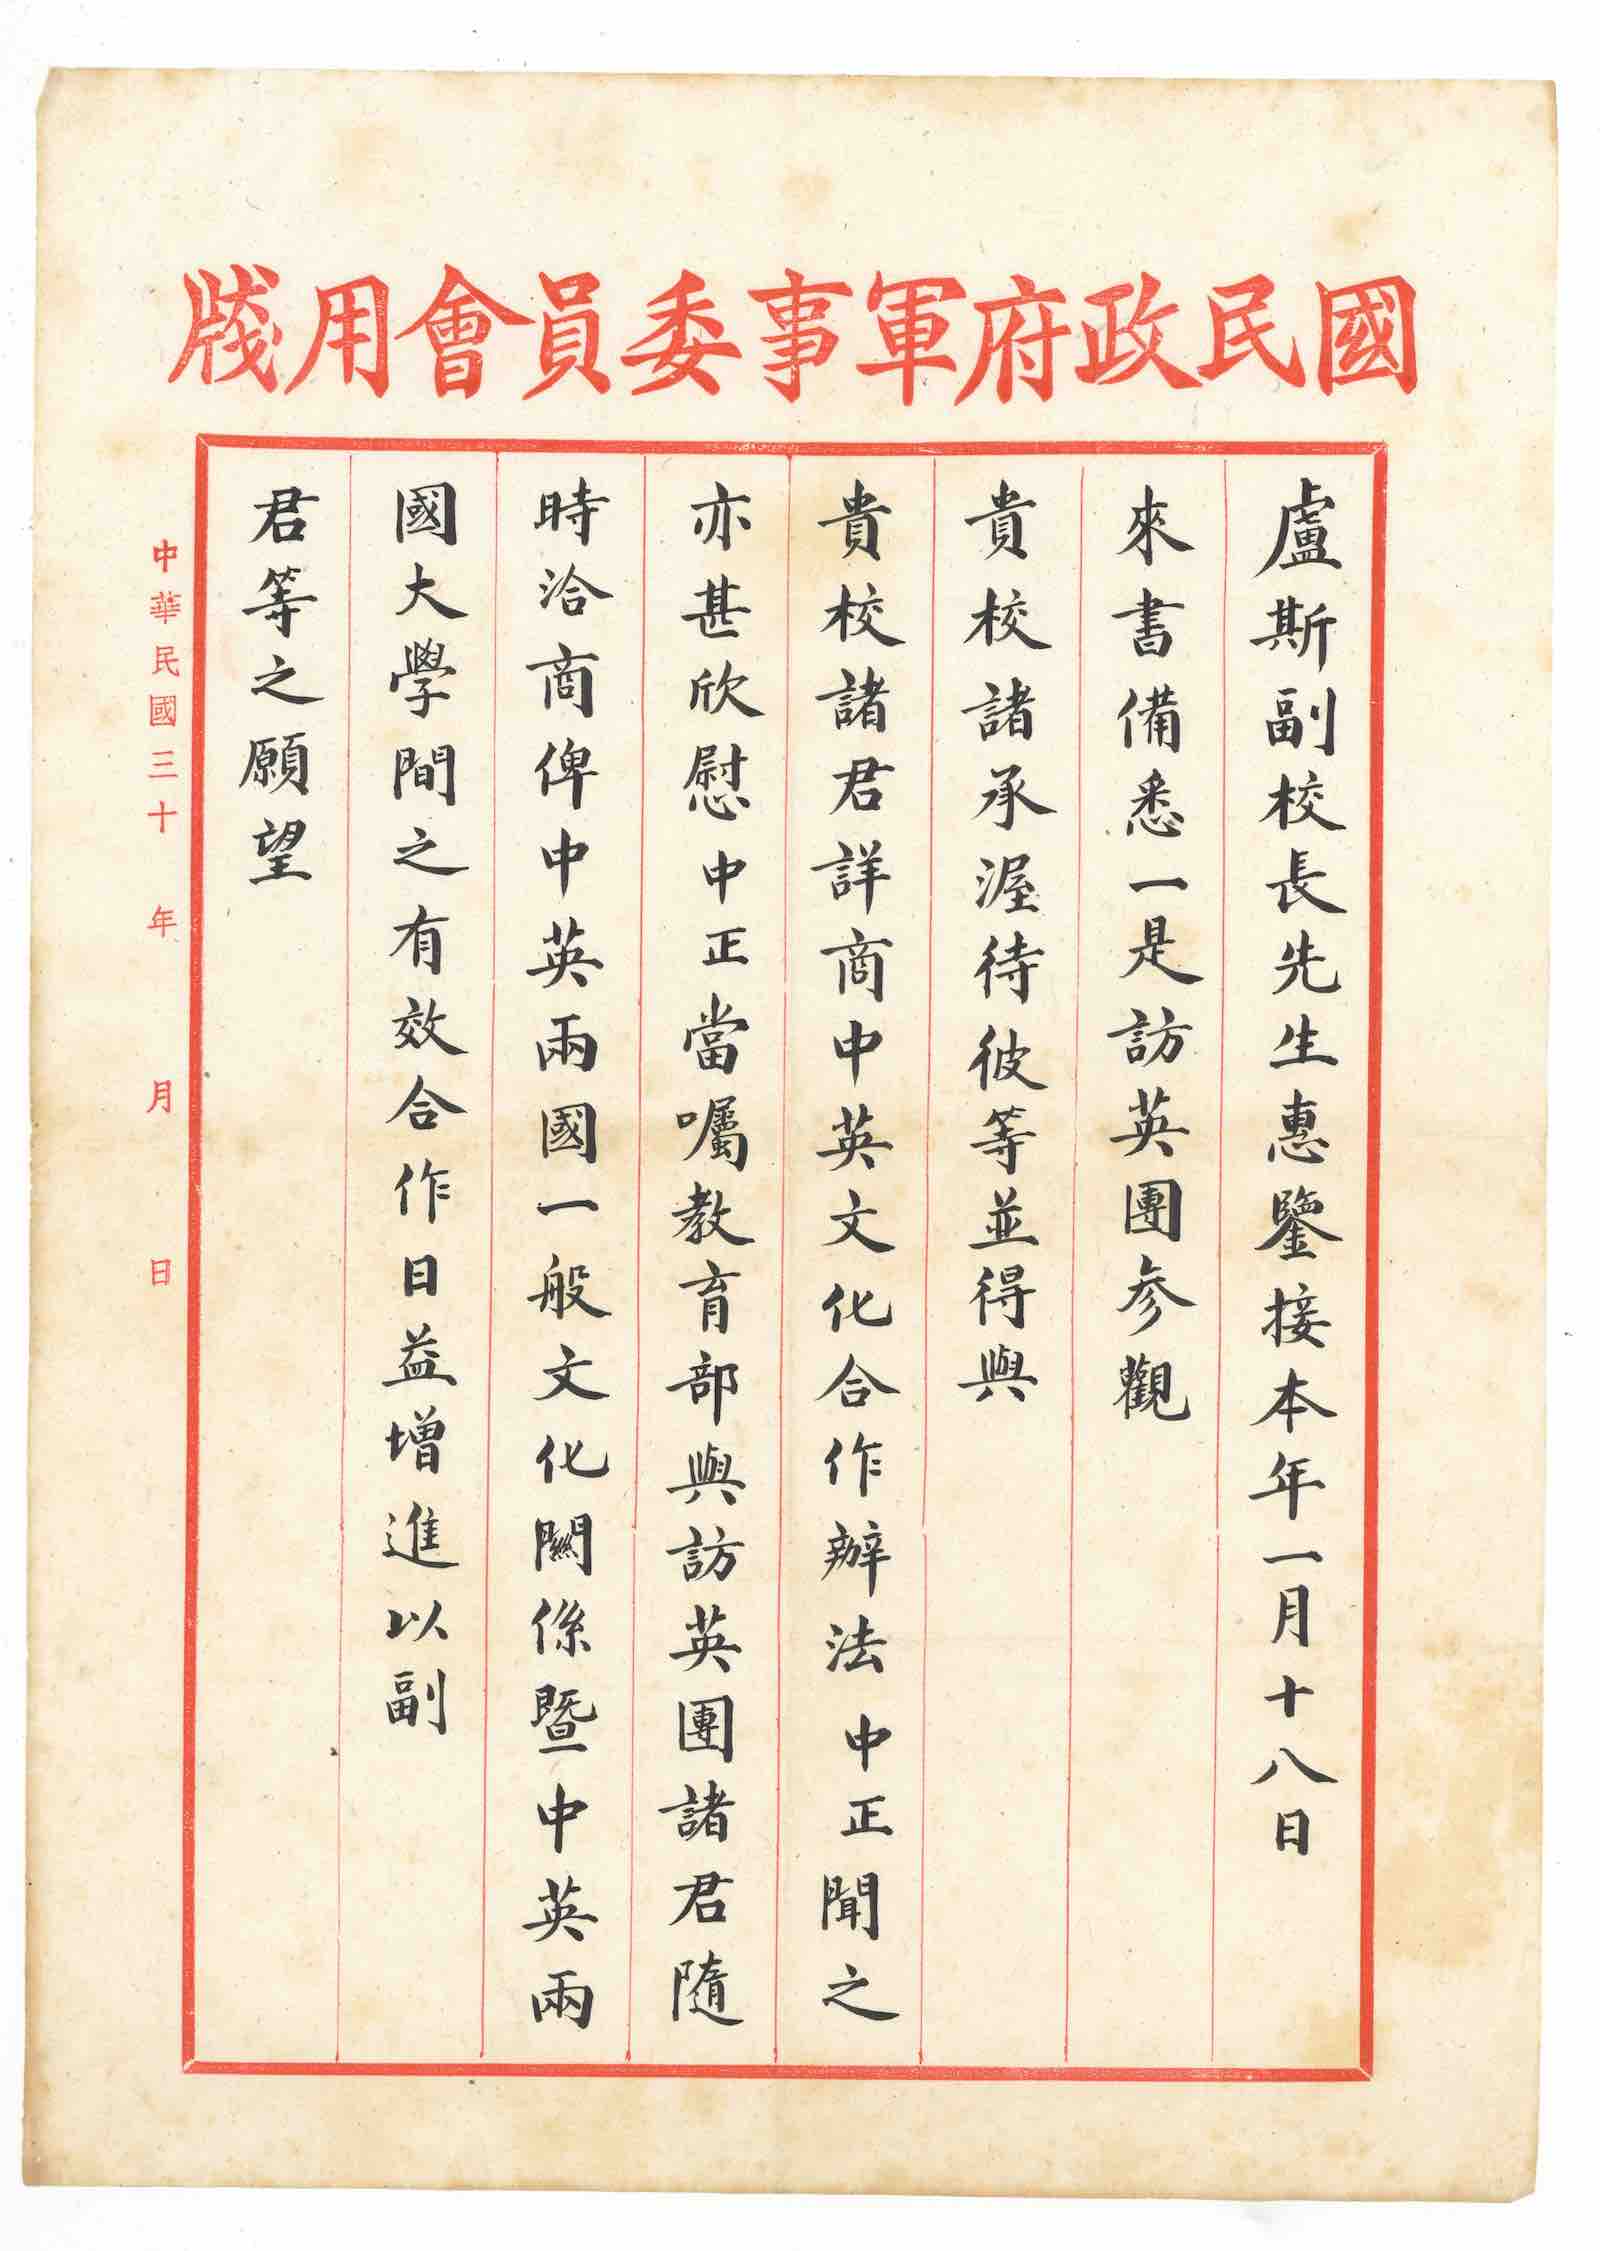 國民政府軍事委員會用牋
盧斯副校長先生惠鑒接本年一月十八日
來書備悉一是訪英團參觀
貴校諸承渥待彼等並得與
貴校諸君詳商中英文化合作辦法中正聞之
亦甚欣慰中正當囑教育部與訪英團諸君隨
時洽商俾中英兩國一般文化關係暨中英兩
國大學間之有效合作日益增進以副
君等之願望
中華民國三十 年 月 日